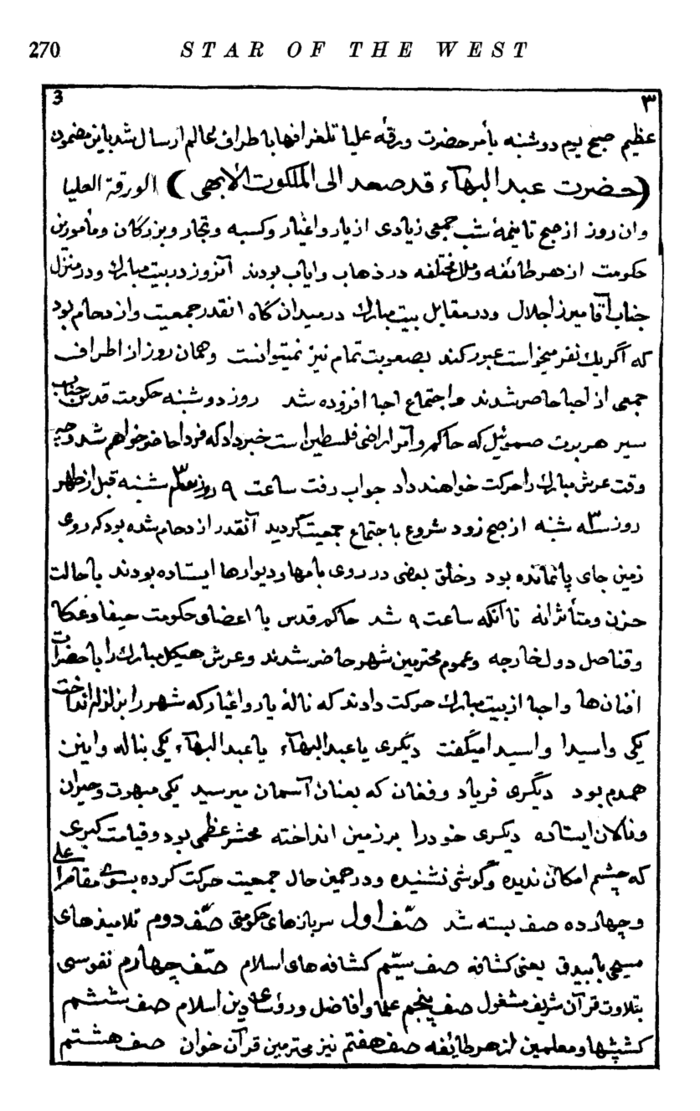 270 STAR OF THE WEST
3 ٣
عظیم صبح یوم دوشنبه بأمر حضرت ورقهٔ علیا تلغرافها باطراف عالم ارسال شد باین مضمون
(حضرت عبدالبهآء قد صعد الی الملکوت الابهی) الورقة العلیا
وان روز از صبح تا نیمهٔ شب جمعی زیادی از یار و اغیار و کسبه و تجار و بزرکان و مأمورین
حکومت از هر طائفه و ملل مختلفه در ذهاب و ایاب بودند آنروز در بیت مبارک و در منزل
جناب آقا میرزا جلال و در مقابل بیت مبارک در میدان کاه انقدر جمعیت و ازدحام بود
که اگر یک نفر میخواست عبور کند بصعوبت تمام نیز نمیتوانست و همان روز از اطراف
جمعی از احبا حاضر شدند و اجتماع احبا افزوده شد روز دوشنبه حکومت قدس جناب
سیر هربرت صموئیل که حاکم و آمر اراضی فلسطین است خبر داد که فردا حاضر خواهم شد و چه
وقت عرش مبارک را حرکت خواهند داد جواب رفت ساعت ۹ روز سه شنبه قبل از ظهر
روز سه شنبه از صبح زود شروع باجتماع جمعیت گردید آنقدر ازدحام شده بود که روی
زمین جای پا نمانده بود و خلق بعضی در روی بامها و دیوارها ایستاده بودند با حالت
حزن و متأثرانه تا آنکه ساعت ۹ شد حاکم قدس با اعضای حکومت حیفا و عکا
و قناصل دول خارجه و عموم محترمین شهر حاضر شدند و عرش هیکل مبارک را با حضرات
افنان ها و احبا از بیت مبارک حرکت دادند که نالهٔ یار و اغیار که شهر را بزلزله انداخت
یکی واسیدا واسیدا میگفت دیکری یا عبدالبهآء یا عبدالبهآء یکی بناله و انین
همدم بود دیگری فریاد و فغان که بعنان آسمان میرسید یکی مبهوت و حیران
و نالان ایستاده دیکری خود را بر زمین انداخته محشر عظمی بود و قیامت کبری
که چشم امکان ندیده و گوشی نشنیده و در همین حال جمعیت حرکت کرده بسوی مقام اعلی
و چهارده صف بسته شد صف اول سربازهای حکومتی صف دوم تلامیذهای
مسیحی با بیدق یعنی کشافه صف سیّم کشافه های اسلام صف چهارم نفوسی
بتلاوت قرآن شریف مشغول صف پنجم علما و افاضل و رؤسای دین اسلام صف ششم
کشیشها و معلمین از هر طایفه صف هفتم نیز محترمین قرآن خوان صف هشتم